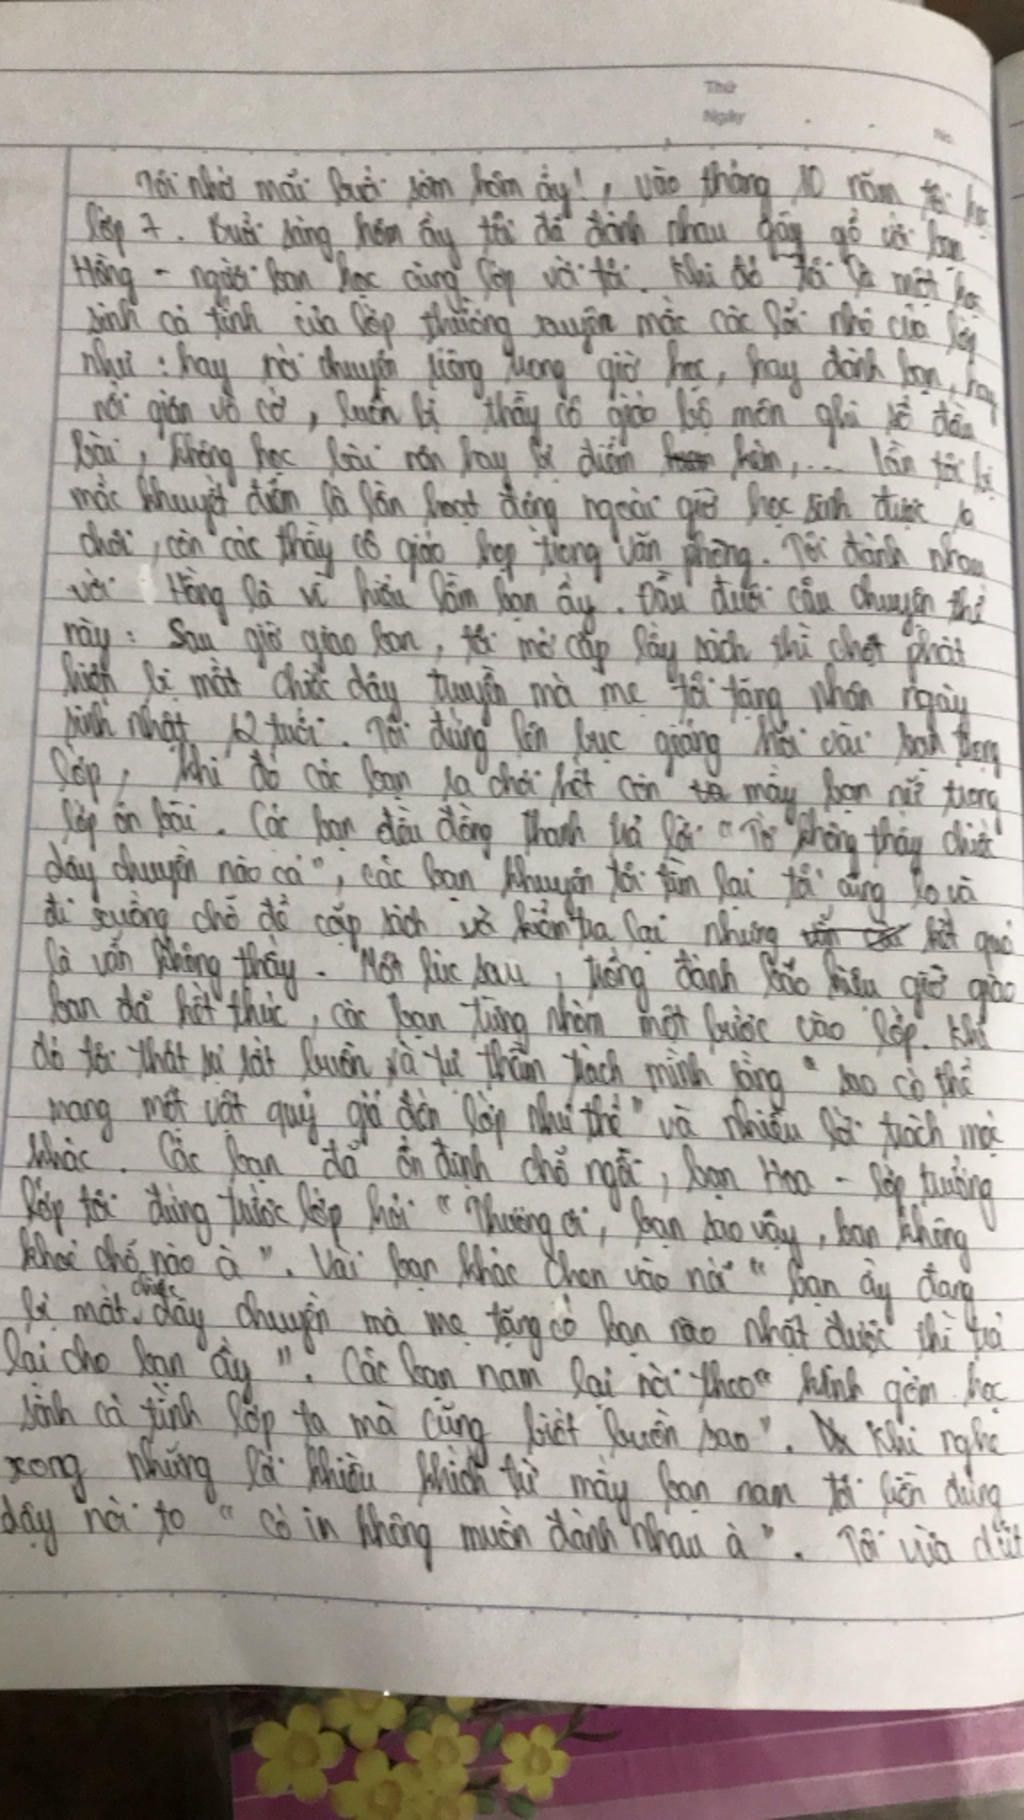 Thứ
Ngày
No.
Tôi nhớ mãi buổi sớm hôm ấy!, vào tháng 10 năm tôi học
lớp 7. Buổi sáng hôm ấy tôi đã đánh nhau gây gổ với bạn
Hồng - người bạn học cùng lớp với tôi. Khi đó tôi là một học
sinh cá tính của lớp thường xuyên mắc các lỗi nhỏ của lớp
như: hay nói chuyện riêng trong giờ học, hay đánh bạn, hay
nổi giận vô cớ, luôn bị thầy cô giáo bộ môn ghi sổ đầu
bài, không học bài nên hay bị điểm kém,... lần tôi bị
mắc khuyết điểm là lần hoạt động ngoài giờ học sinh được ra
chơi, còn các thầy cô giáo họp trong văn phòng. Tôi đánh nhau
với Hồng là vì hiểu lầm bạn ấy. Đầu đuôi câu chuyện thế
này: Sau giờ giao ban, tôi mở cặp lấy sách thì chợt phát
hiện bị mất chiếc dây truyền mà mẹ tôi tặng nhân ngày
sinh nhật 12 tuổi. Tôi đứng lên bục giảng hỏi vài bạn trong
lớp, khi đó các bạn ra chơi hết còn mấy bạn nữ trong
lớp ôn bài. Các bạn đều đồng thanh trả lời "Tớ không thấy chiếc
dây chuyền nào cả", các bạn khuyên tôi tìm lại tôi cũng lo và
đi xuống chỗ để cặp sách và kiểm tra lại nhưng kết quả
là vẫn không thấy. Một lúc sau, trống đánh báo hiệu giờ giao
ban đã kết thúc, các bạn từng nhóm một bước vào lớp. Khi
đó tôi thật sự rất buồn và tự thầm trách mình rằng "sao có thể
mang một vật quý giá đến lớp như thế" và nhiều lời trách móc
khác. Các bạn đã ổn định chỗ ngồi, bạn Hoa - lớp trưởng
lớp tôi đứng trước lớp hỏi "Thương ơi, bạn sao vậy, bạn không
khoẻ chỗ nào à". Vài bạn khác chen vào nói "bạn ấy đang
bị mất chiếc dây chuyền mà mẹ tặng có bạn nào nhặt được thì trả
lại cho bạn ấy". Các bạn nam lại nói theo" hính gớm học
sinh cá tính lớp ta mà cũng biết buồn sao". Khi nghe
xong những lời khiêu khích từ mấy bạn nam tôi liền đứng
dậy nói to "có in không muốn đánh nhau à". Tôi vừa dứt